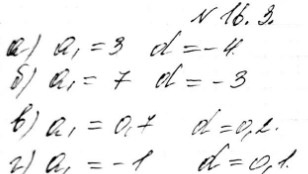 № 16. 3.
а) a₁ = 3 d = -4
б) a₁ = 7 d = -3
в) a₁ = 0,7 d = 0,2.
г) a₁ = -1 d = 0,1.